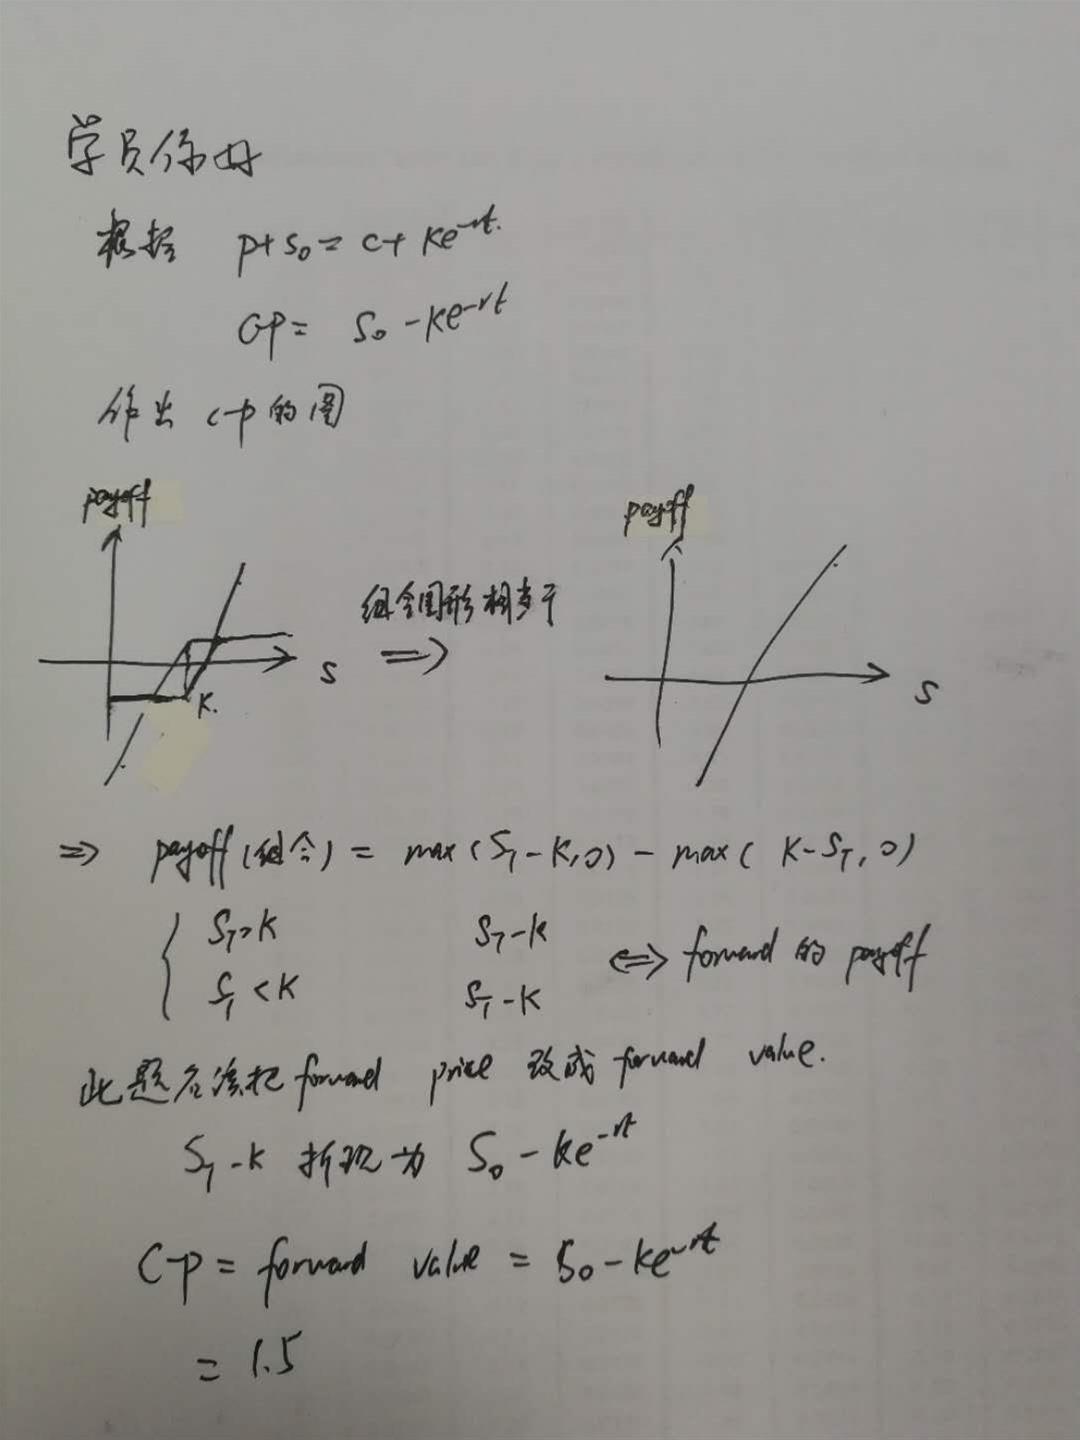 学员你好
根据 p+S₀ = c+ Ke^-rt.
C-P = S₀ - Ke^-rt
作出 c-p 的图
payoff
payoff
组合图形相当于
⇒
S
K.
S
⇒ payoff (组合) = max (S_T - K, 0) - max ( K - S_T, 0)
{ S_T > K S_T - K
S_T < K S_T - K
⇔ forward 的 payoff
此题应该把 forward price 改成 forward value.
S_T - K 折现为 S₀ - Ke^-rt
C-P = forward value = S₀ - Ke^-rt
= 1.5